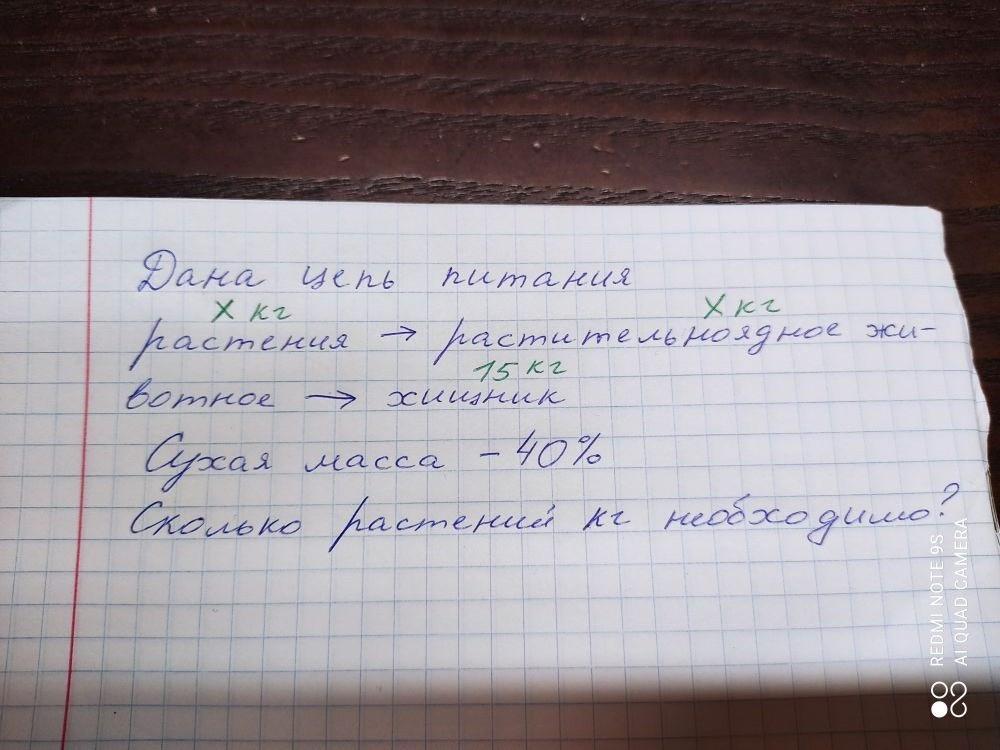 Дана цепь питания
X кг X кг
растения → растительноядное жи-
15 кг
вотное → хищник
Сухая масса - 40%
Сколько растений кг необходимо?
REDMI NOTE 9S
AI QUAD CAMERA